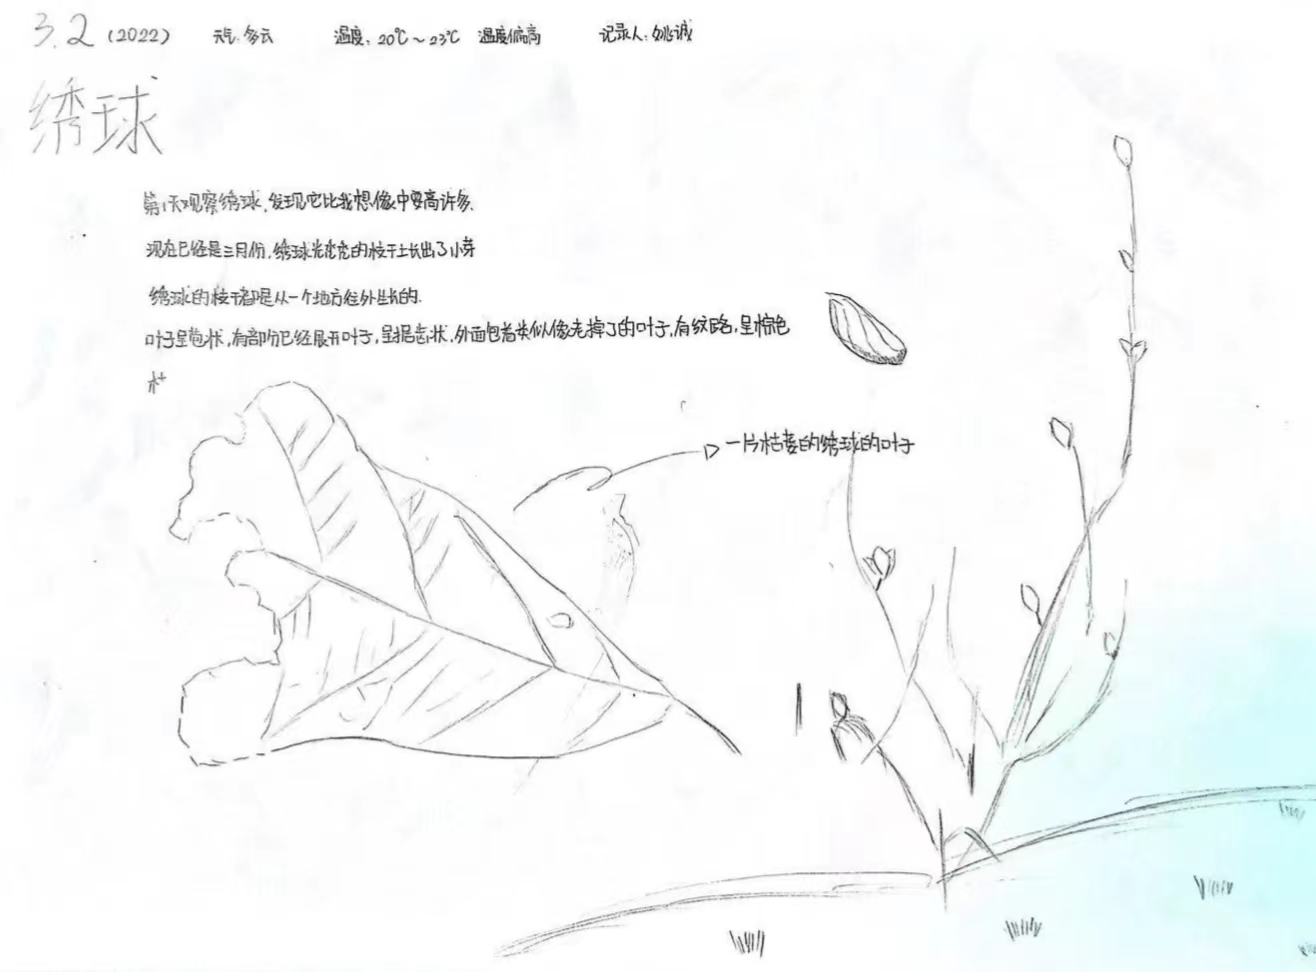 3.2 (2022) 天气:多云 温度:20℃~23℃ 温度偏高 记录人:姚诚
绣球
第1天观察绣球,发现它比我想像中要高许多.
现在已经是三月份,绣球光秃秃的枝干上长出了小芽
绣球的枝干都是从一个地方往外生长的.
叶子呈苞状,有部分已经展开叶子,呈锯齿状.外面包着类似像老掉了的叶子,有纹路,呈棕色
一片枯萎的绣球的叶子